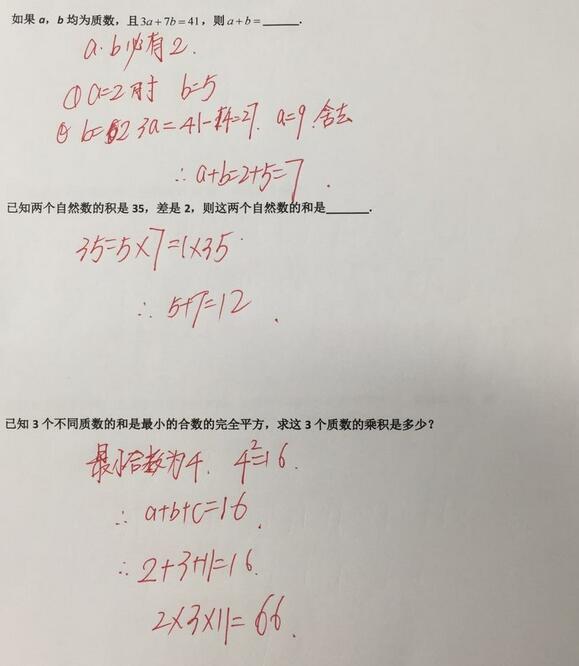 如果 a，b 均为质数，且3a+7b=41，则a+b=______.
a.b必有2.
①a=2时 b=5
b=2 3a=41-14=27. a=9.舍去
∴a+b=2+5=7.
已知两个自然数的积是 35，差是 2，则这两个自然数的和是______.
35=5×7=1×35.
∴5+7=12.
已知 3 个不同质数的和是最小的合数的完全平方，求这 3 个质数的乘积是多少？
最小合数为4. 4²=16.
∴a+b+c=16.
∴2+3+11=16.
2×3×11=66.